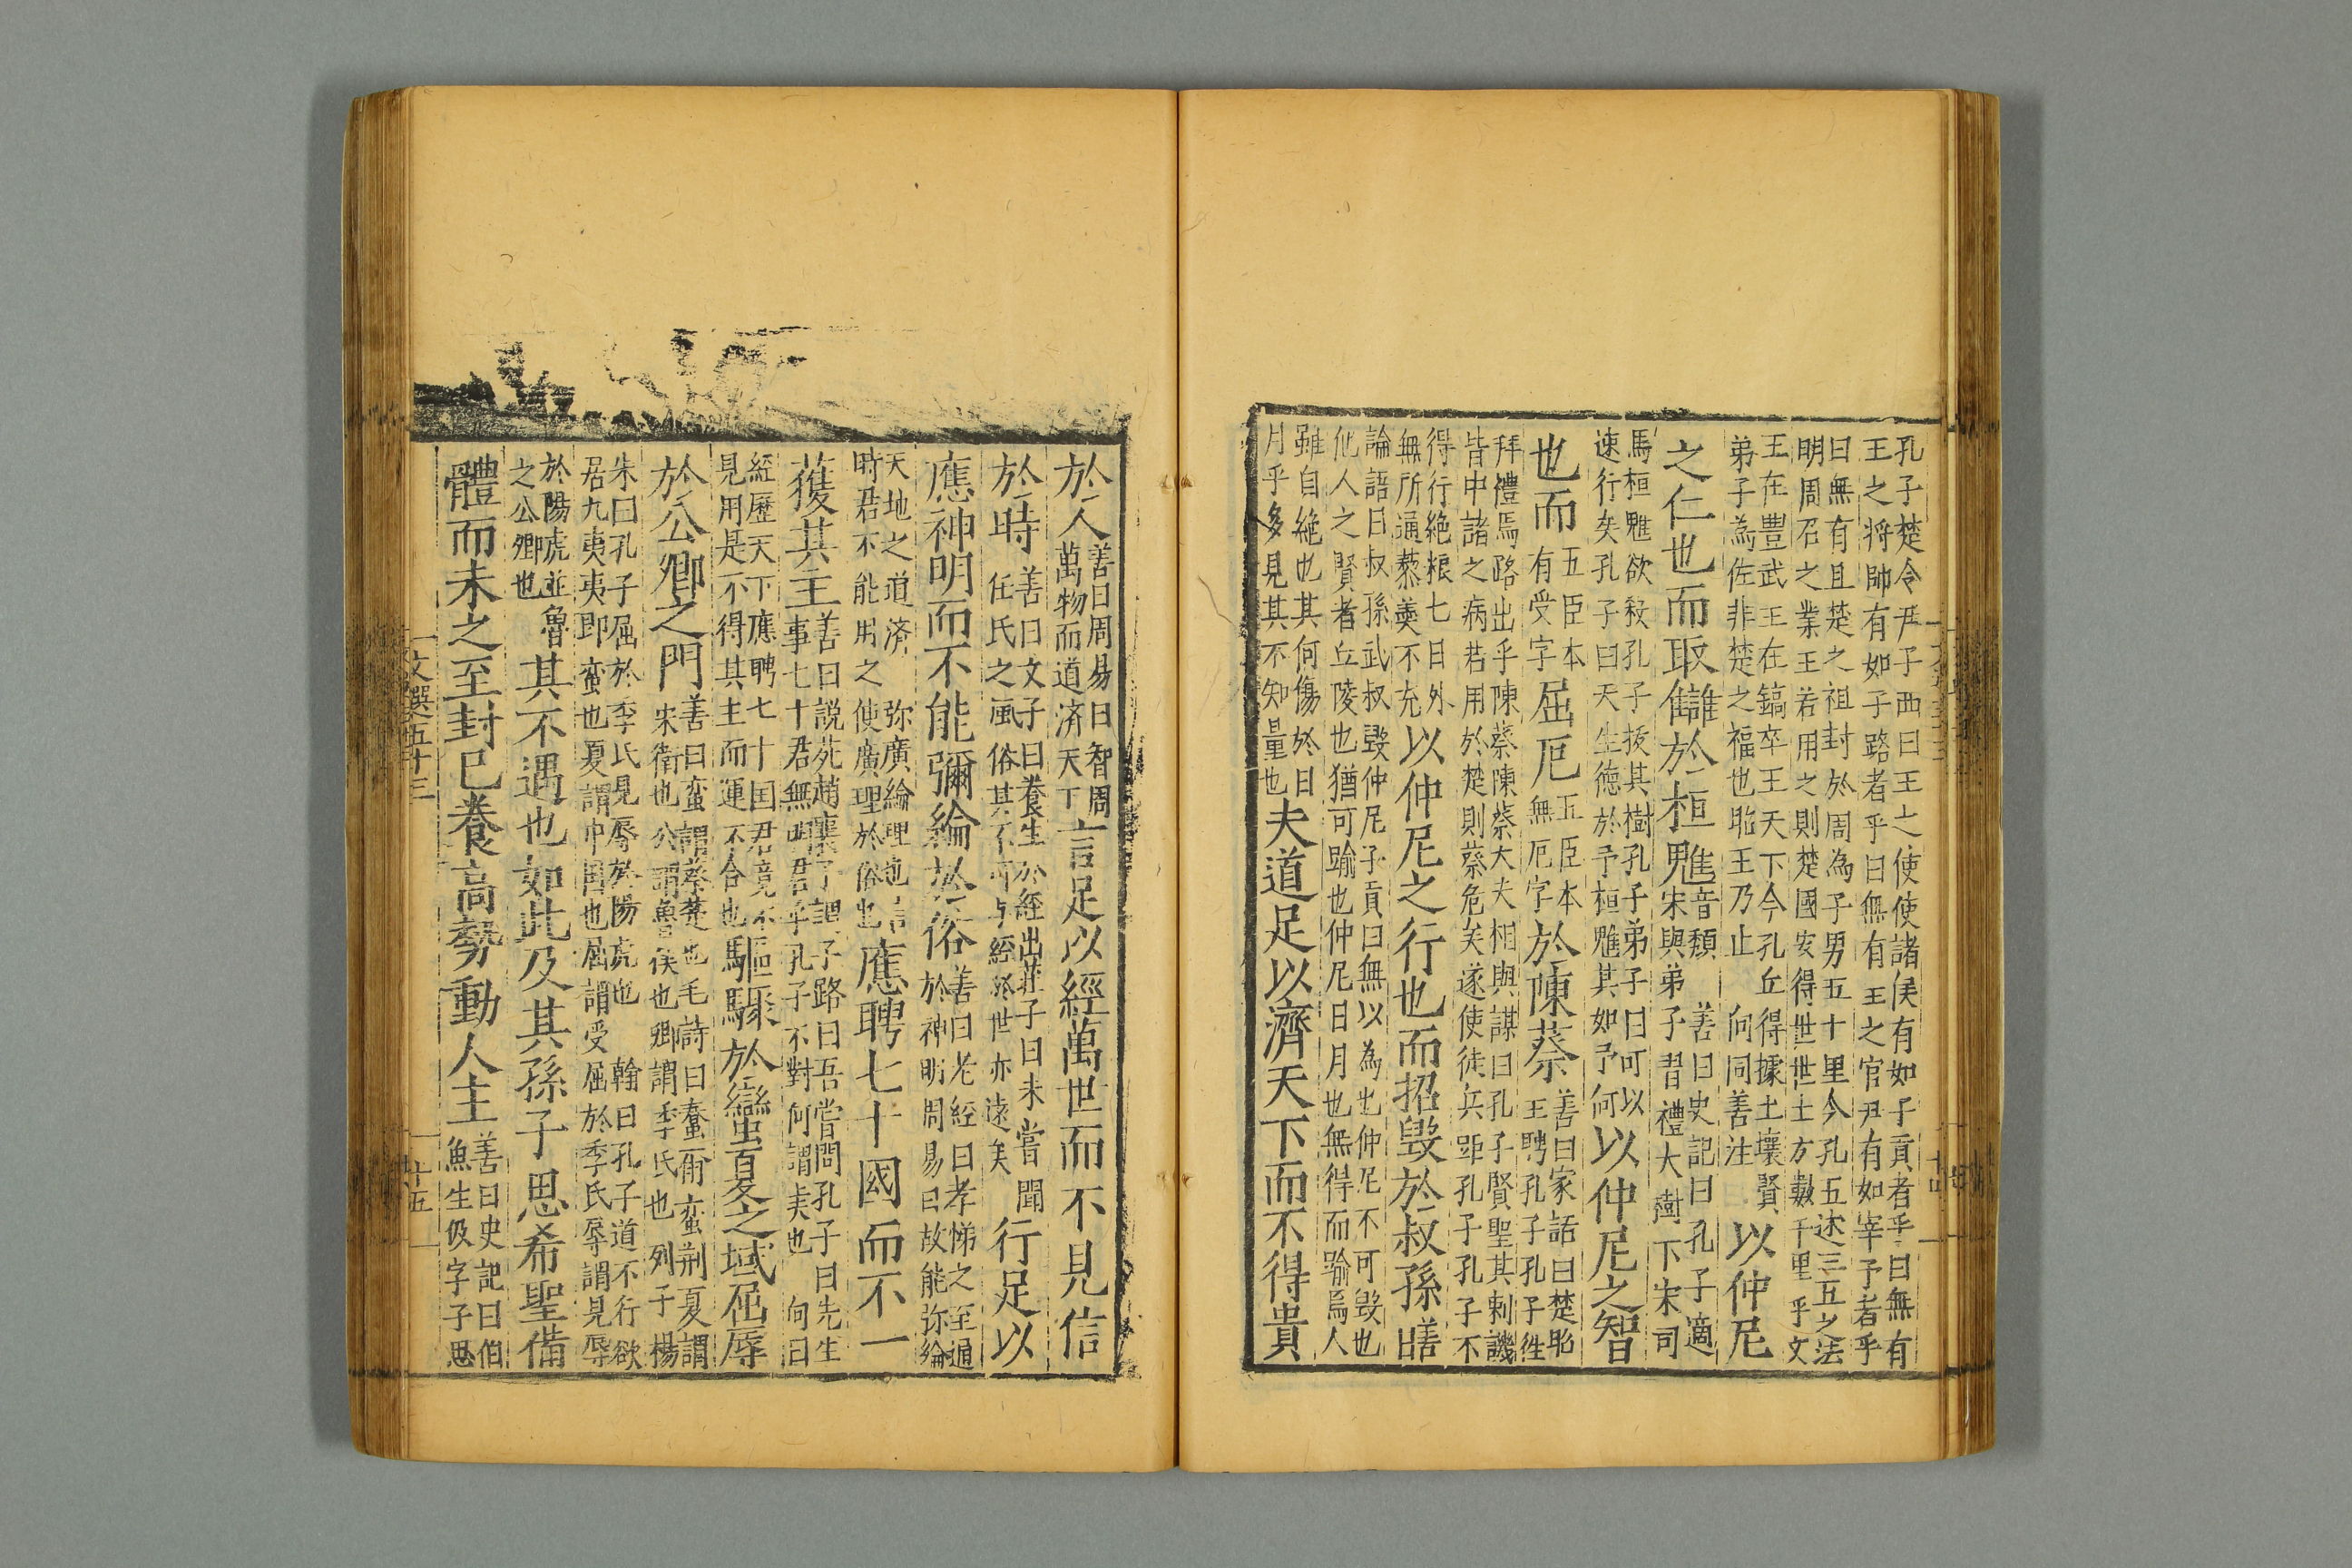 孔子楚令尹子西曰王之使使諸侯有如子貢者乎曰無有
王之將帥有如子路者乎曰無有王之官尹有如宰予者乎
曰無有且楚之祖封於周為子男五十里今孔五述三五之法
明周召之業王若用之則楚國安得世世土方數千里乎文
王在豊武王在鎬卒王天下今孔丘得據土壤賢
弟子為佐非楚之福也昭王乃止 向同善注 以仲尼
之仁也而取讎於桓魋音頹 善曰史記曰孔子適
宋與弟子習禮大樹下宋司
馬桓魋欲殺孔子拔其樹孔子弟子曰可以
速行矣孔子曰天生德於予桓魋其如予何以仲尼之智
也而五臣本有受字屈厄五臣本無厄字於陳蔡善曰家語曰楚昭
王聘孔子孔子徃
拜禮焉路出乎陳蔡陳蔡大夫相與謀曰孔子賢聖其刺譏
皆中諸之病若用於楚則蔡危矣遂使徒兵距孔子孔子不
得行絶粮七日外
無所通藜羹不充以仲尼之行也而招毀於叔孫善曰
論語曰叔孫武叔毀仲尼子貢曰無以為也仲尼不可毀也
他人之賢者丘陵也猶可踰也仲尼日月也無得而踰焉人
雖自絶也其何傷於日
月乎多見其不知量也夫道足以濟天下而不得貴
於人善曰周易曰智周
萬物而道済天下言足以經萬世而不見信
於時善曰文子曰養生於經出莊子曰未嘗聞
任氏之風俗其不可与經於世亦遠矣行足以
應神明而不能彌綸於俗善曰孝經曰孝悌之至通
於神明周易曰故能弥綸
天地之道済 弥廣綸理也言
時君不能用之使廣理於俗也應聘七十國而不一
獲其主善曰説苑趙襄子謂子路曰吾嘗問孔子曰先生
事七十君無明君乎孔子不對何謂矣也 向曰
經歷天下應聘七十国君竟不
見用是不得其主而運不合也驅驟於蠻夏之域屈辱
於公卿之門善曰蛮謂蔡楚也毛詩曰蠢爾蛮荆夏謂
宋衛也公謂魯侯也卿謂季氏也 列子楊
朱曰孔子屈於季氏見辱於陽虎也 翰曰孔子道不行欲
居九夷夷即蛮也夏謂中国也屈謂受屈於季氏辱謂見辱
於陽虎並魯
之公卿也其不遇也如此及其孫子思希聖備
體而未之至封已養高勢動人主善曰史記曰伯
魚生伋字子思
文選五十三
十五